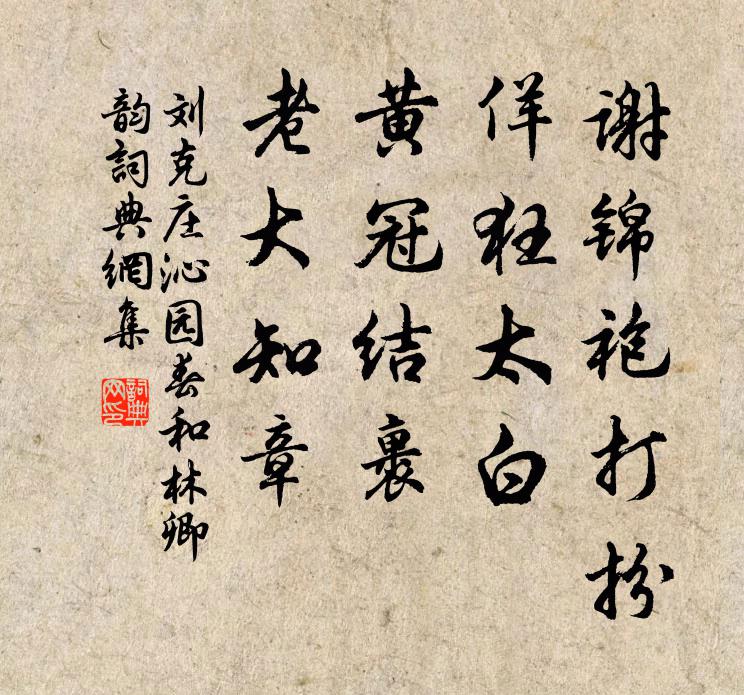 谢锦袍打扮
佯狂太白
黄冠结裹
老大知章
刘克庄沁园春和林卿
韵詞典網集
詞典网印